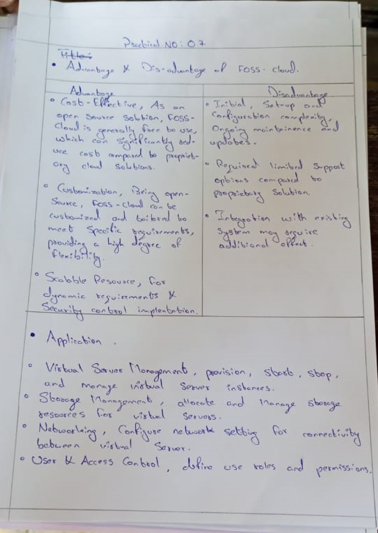 Practical NO: 07
• Advantage & Dis-advantage of FOSS-cloud.
Advantage
• Cost-Effective, As an
open source solution, FOSS-
Cloud is generally free to use,
which can significantly red-
uce costs compared to propriet-
ory cloud solutions.
• Customization, Being open-
Source, FOSS-Cloud can be
customized and tailored to
meet specific requirements,
providing a high degree of
flexibility
• Scalable Resource, for
dynamic requirements &
Security control implentation.
Disadvantage
• Initial, Set-up and
configuration complexity.
Ongoing maintainence and
updates.
• Required limited support
options compared to
proprietary Solution.
• Integration with existing
System may require
additional effort.
• Application.
• Virtual Server Management, provision, start, stop,
and manage virtual server instances.
• Storage Management, allocate and manage storage
resources for virtual servers.
• Networking, Configure network setting for connectivity
between virtual Server.
• User & Access Control, define use roles and permissions.